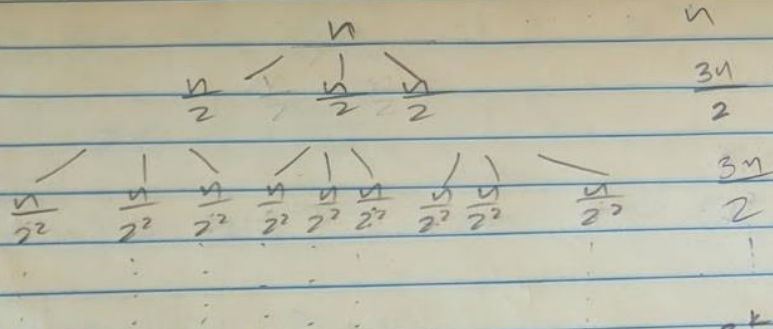 n n
n/2 n/2 n/2 3n/2
n/2² n/2² n/2² n/2² n/2² n/2² n/2² n/2² n/2² 3n/2